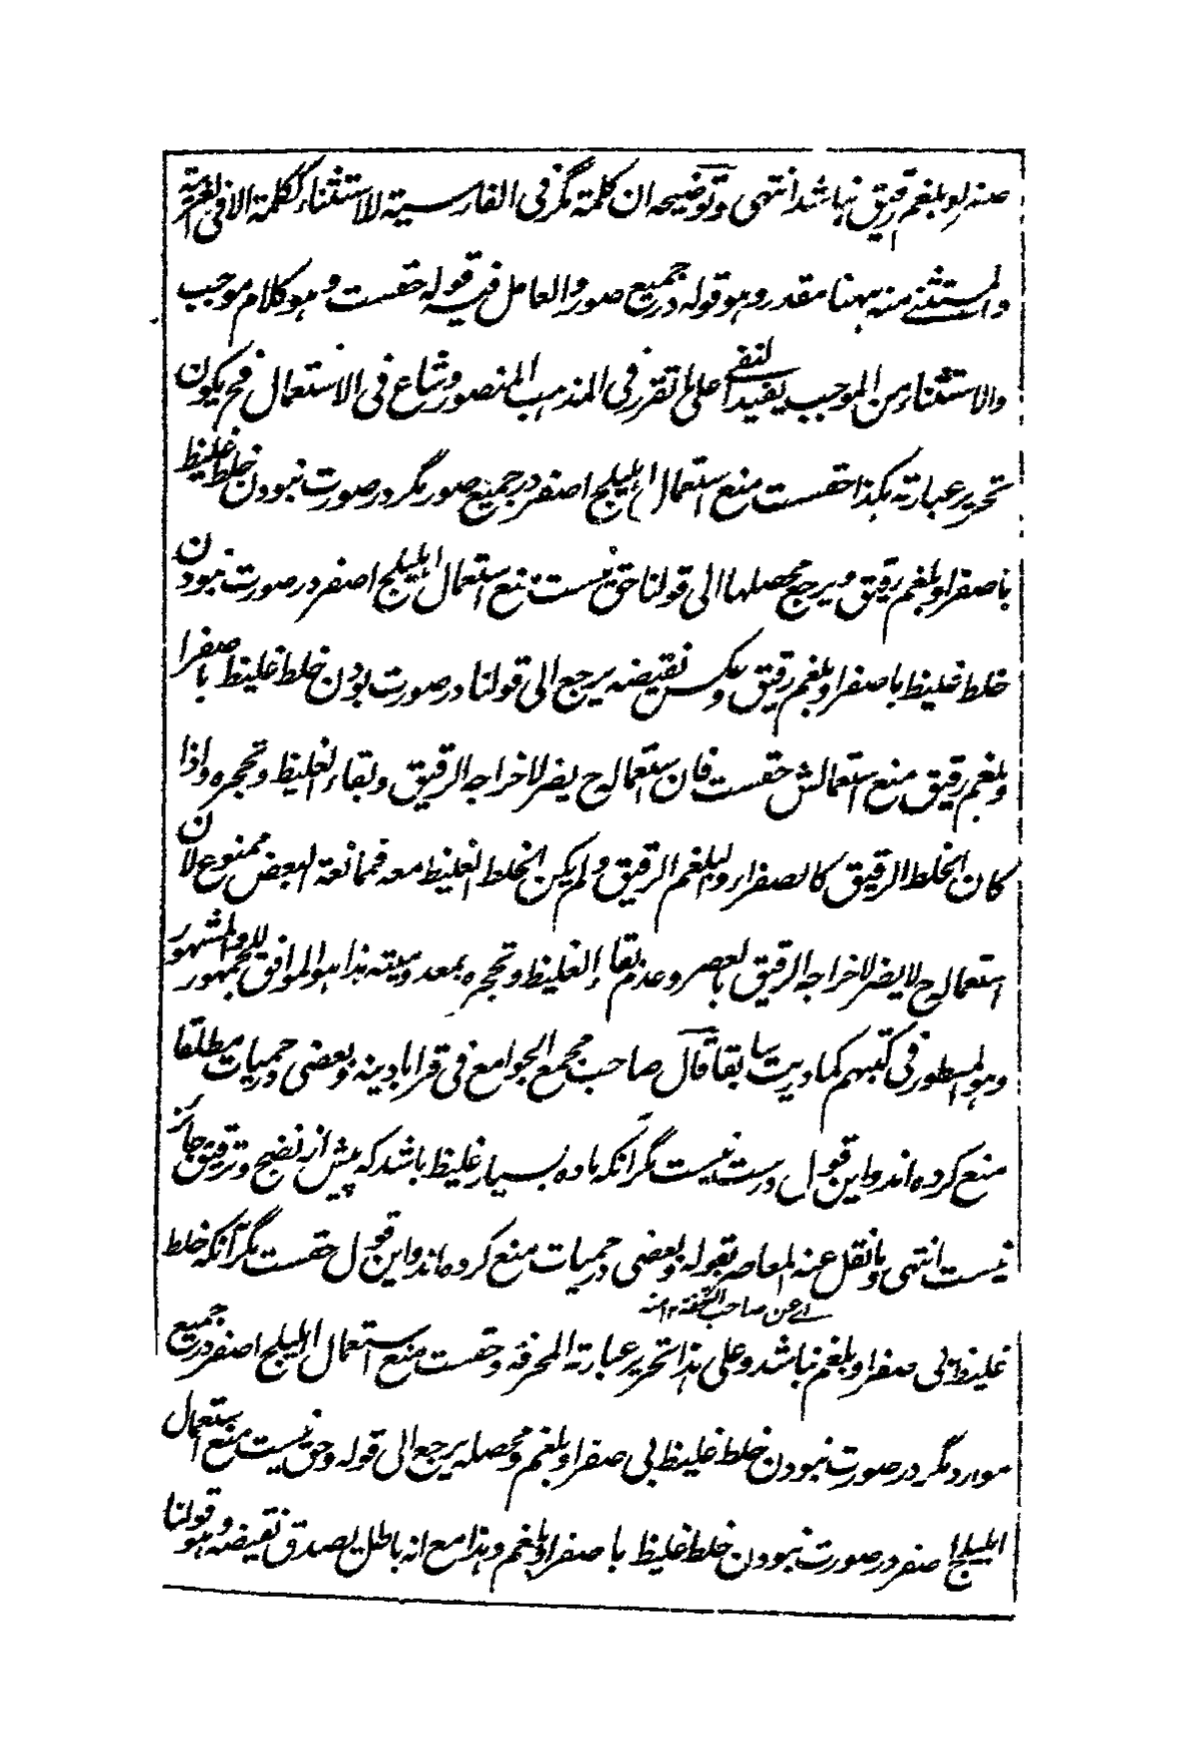 صفراو بلغم رقیق نباشد انتهی وتوضیحه ان کلمة مگر فی الفارسیة للاستثناء ککلمة الا فی العربیة
والمستثنی منه ههنا مقدر وهو قوله در جمیع صور والعامل فیه قوله حقست وهو کلام موجب
والاستثناء من الموجب یفید النفی علی ما تقرر فی المذهب المنصور وشاع فی الاستعمال فح یکون
تحریر عبارته هکذا حقست منع استعمال اهلیلج اصفر در جمیع صور مگر در صورت نبودن خلط غلیظ
با صفرا و بلغم رقیق ویرجع محصلها الی قولنا حق نیست منع استعمال اهلیلج اصفر در صورت نبودن
خلط غلیظ با صفرا و بلغم رقیق وعکس نقیضه یرجع الی قولنا در صورت بودن خلط غلیظ با صفرا
و بلغم رقیق منع استعمالش حقست فان استعماله ح یضر لاخراجه الرقیق وبقاء الغلیظ وتحجره واذا
کان الخلط الرقیق کالصفراء والبلغم الرقیق ولم یکن الخلط الغلیظ معه فممانعة البعض ممنوع لان
استعماله ح لا یضر لاخراجه الرقیق بالعصر وعدم بقاء الغلیظ وتحجره بمعدومیته هذا هو الموافق للجمهور والمشهور
وهو المسطور فی کتبهم کما دریت سابقا قال صاحب مجمع الجوامع فی قرابادینه وبعضی در حمیات مطلقا
منع کرده اند و این قول درست نیست مگر آنکه ماده بسیار غلیظ باشد که پیش از نضج و ترقیق جائز
نیست انتهی وما نقل عنه المعاصر بقوله وبعضی در حمیات منع کرده اند و این قول حقست مگر آنکه خلط
اے عن صاحب التحفة ۱۲ منه
غلیظ بی صفرا و بلغم نباشد وعلی هذا تحریر عبارته المحرفة وحقست منع استعمال اهلیلج اصفر در جمیع
موارد مگر در صورت نبودن خلط غلیظ بی صفرا و بلغم ومحصله یرجع الی قوله وحق نیست منع استعمال
اهلیلج اصفر در صورت نبودن خلط غلیظ با صفرا و بلغم وهذا مع انه باطل یصدق نقیضه وهو قولنا